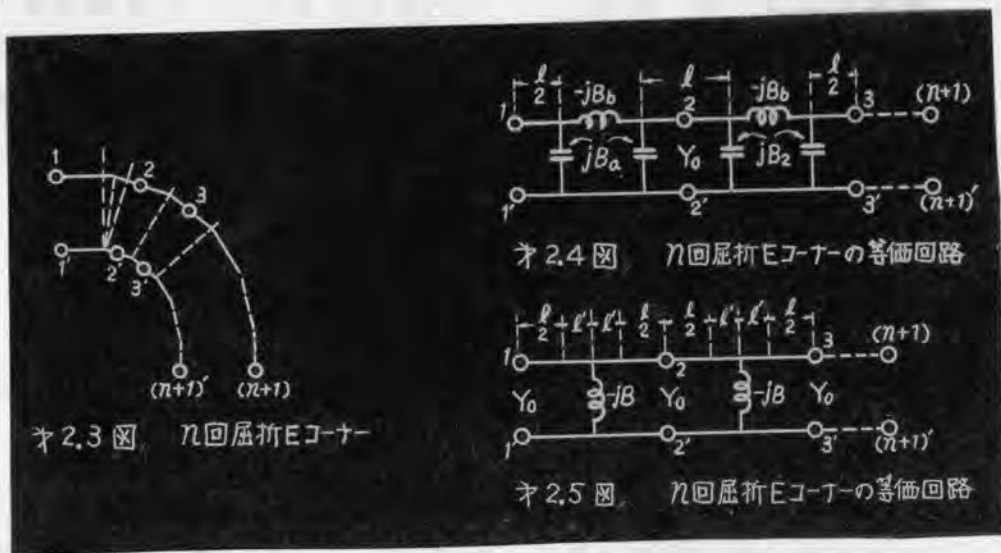 1
2
3
1'
2'
3'
(n+1)'
(n+1)
才2.3図 n回屈折Eコーナー
l/2 l l/2
-jBb -jBb
1 2 3 (n+1)
jBa Y0 jB2
1' 2' 3' (n+1)'
才2.4図 n回屈折Eコーナーの等価回路
l/2 l' l' l/2 l/2 l' l' l/2
1 2 3 (n+1)
Y0 -jB Y0 -jB Y0
1' 2' 3' (n+1)'
才2.5図 n回屈折Eコーナーの等価回路